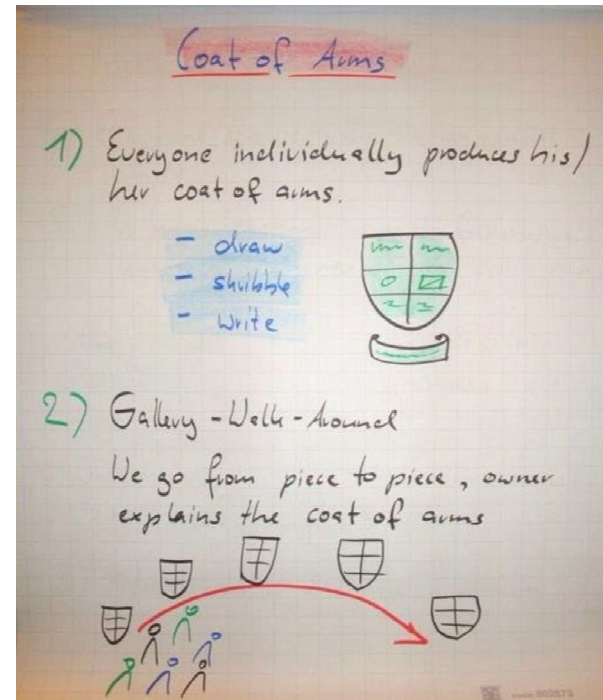 Coat of Arms
1) Everyone individually produces his/
her coat of arms.
- draw
- skribble
- write
2) Gallery-Walk-Around
We go from piece to piece, owner
explains the coat of arms